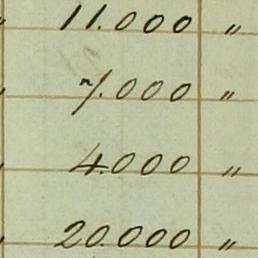 11.000 "
7.000 "
4.000 "
20.000 "